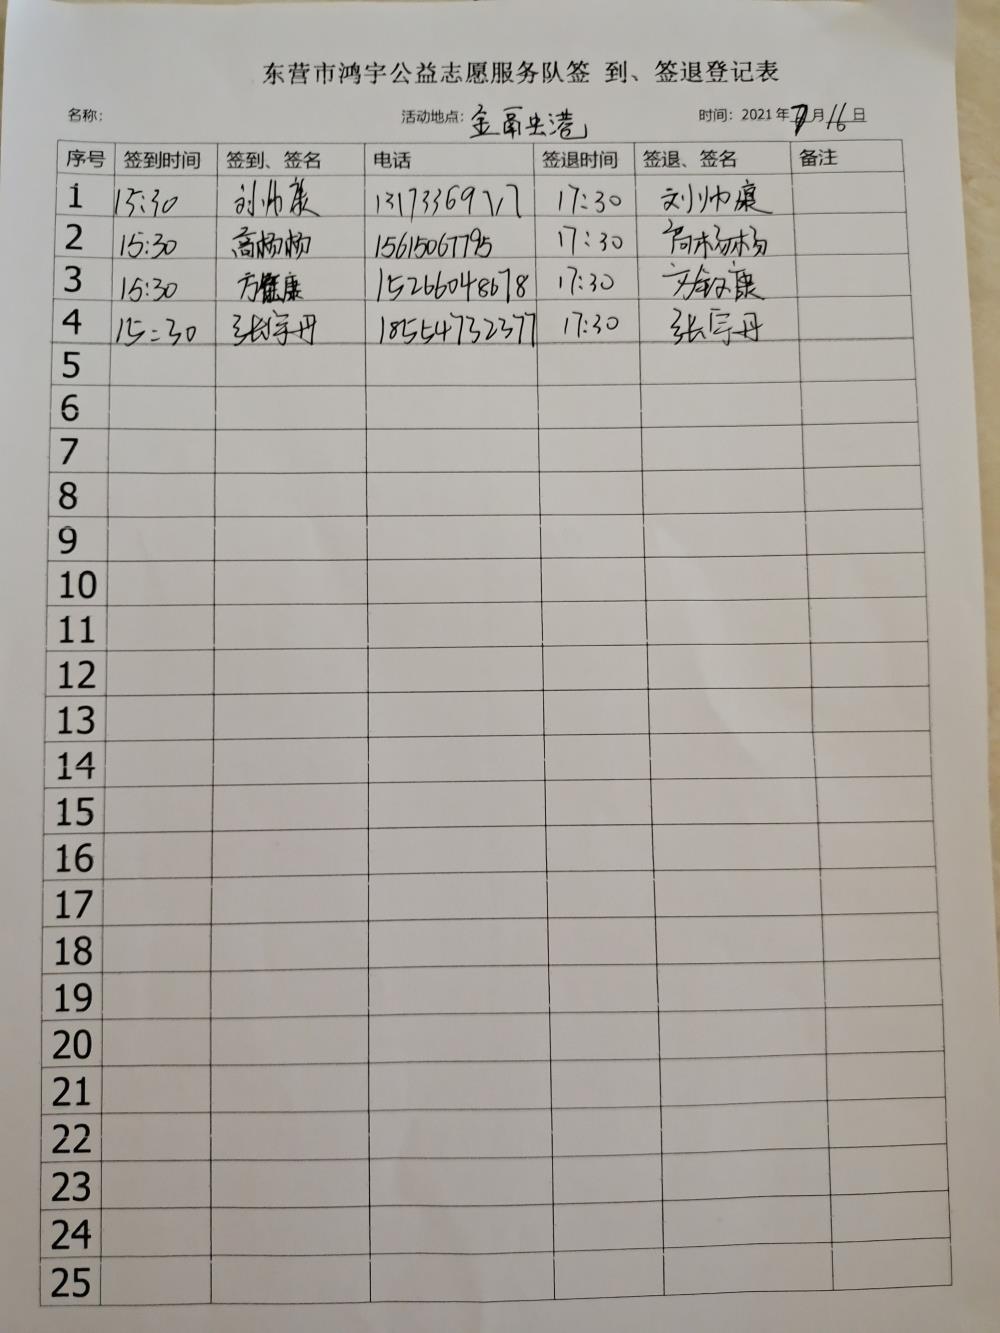 东营市鸿宇公益志愿服务队签 到、签退登记表
名称： 活动地点： 金 港 时间：2021年7月16日
序号 签到时间 签到、签名 电话 签退时间 签退、签名 备注
1 15:30 刘帅康 13173369 17:30 刘帅康
2 15:30 高杨杨 15615067795 17:30 高杨杨
3 15:30 康 15266048678 17:30 康
4 15:30 张宇丹 18554732377 17:30 张宇丹
5
6
7
8
9
10
11
12
13
14
15
16
17
18
19
20
21
22
23
24
25